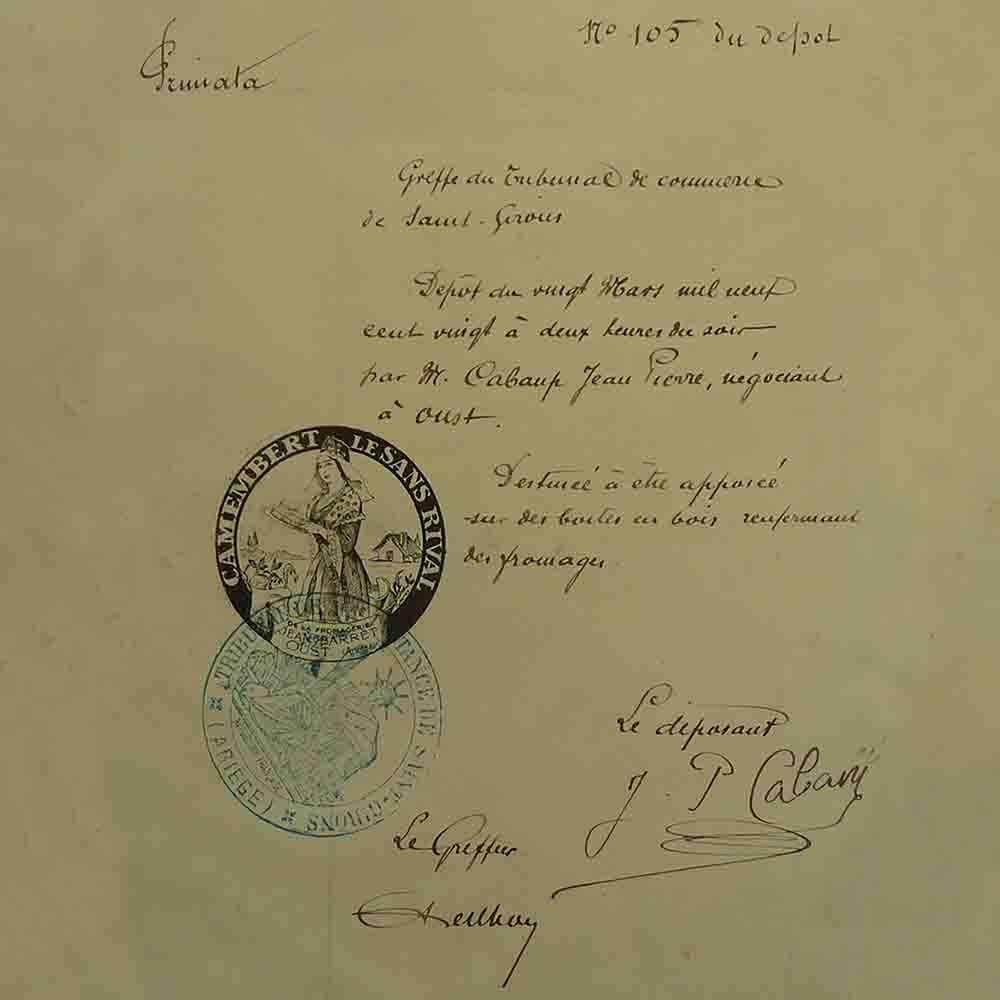 Primata
No 105 du depot
Greffe du Tribunal de commerce
de Saint-Girons
Depôt du vingt Mars mil neuf
cent vingt à deux heures du soir
par M. Cabanp Jean Pierre, négociant
à Oust.
Destinée à être apposée
sur des boites en bois renfermant
des fromages.
CAMEMBERT LE SANS RIVAL
DE LA FROMAGERIE
JEAN BARRET
OUST (Ariège)
TRIBUNAL INSTANCE DE SAINT-GIRONS
(ARIEGE)
Le déposant
J. P Cabanp
Le Greffier